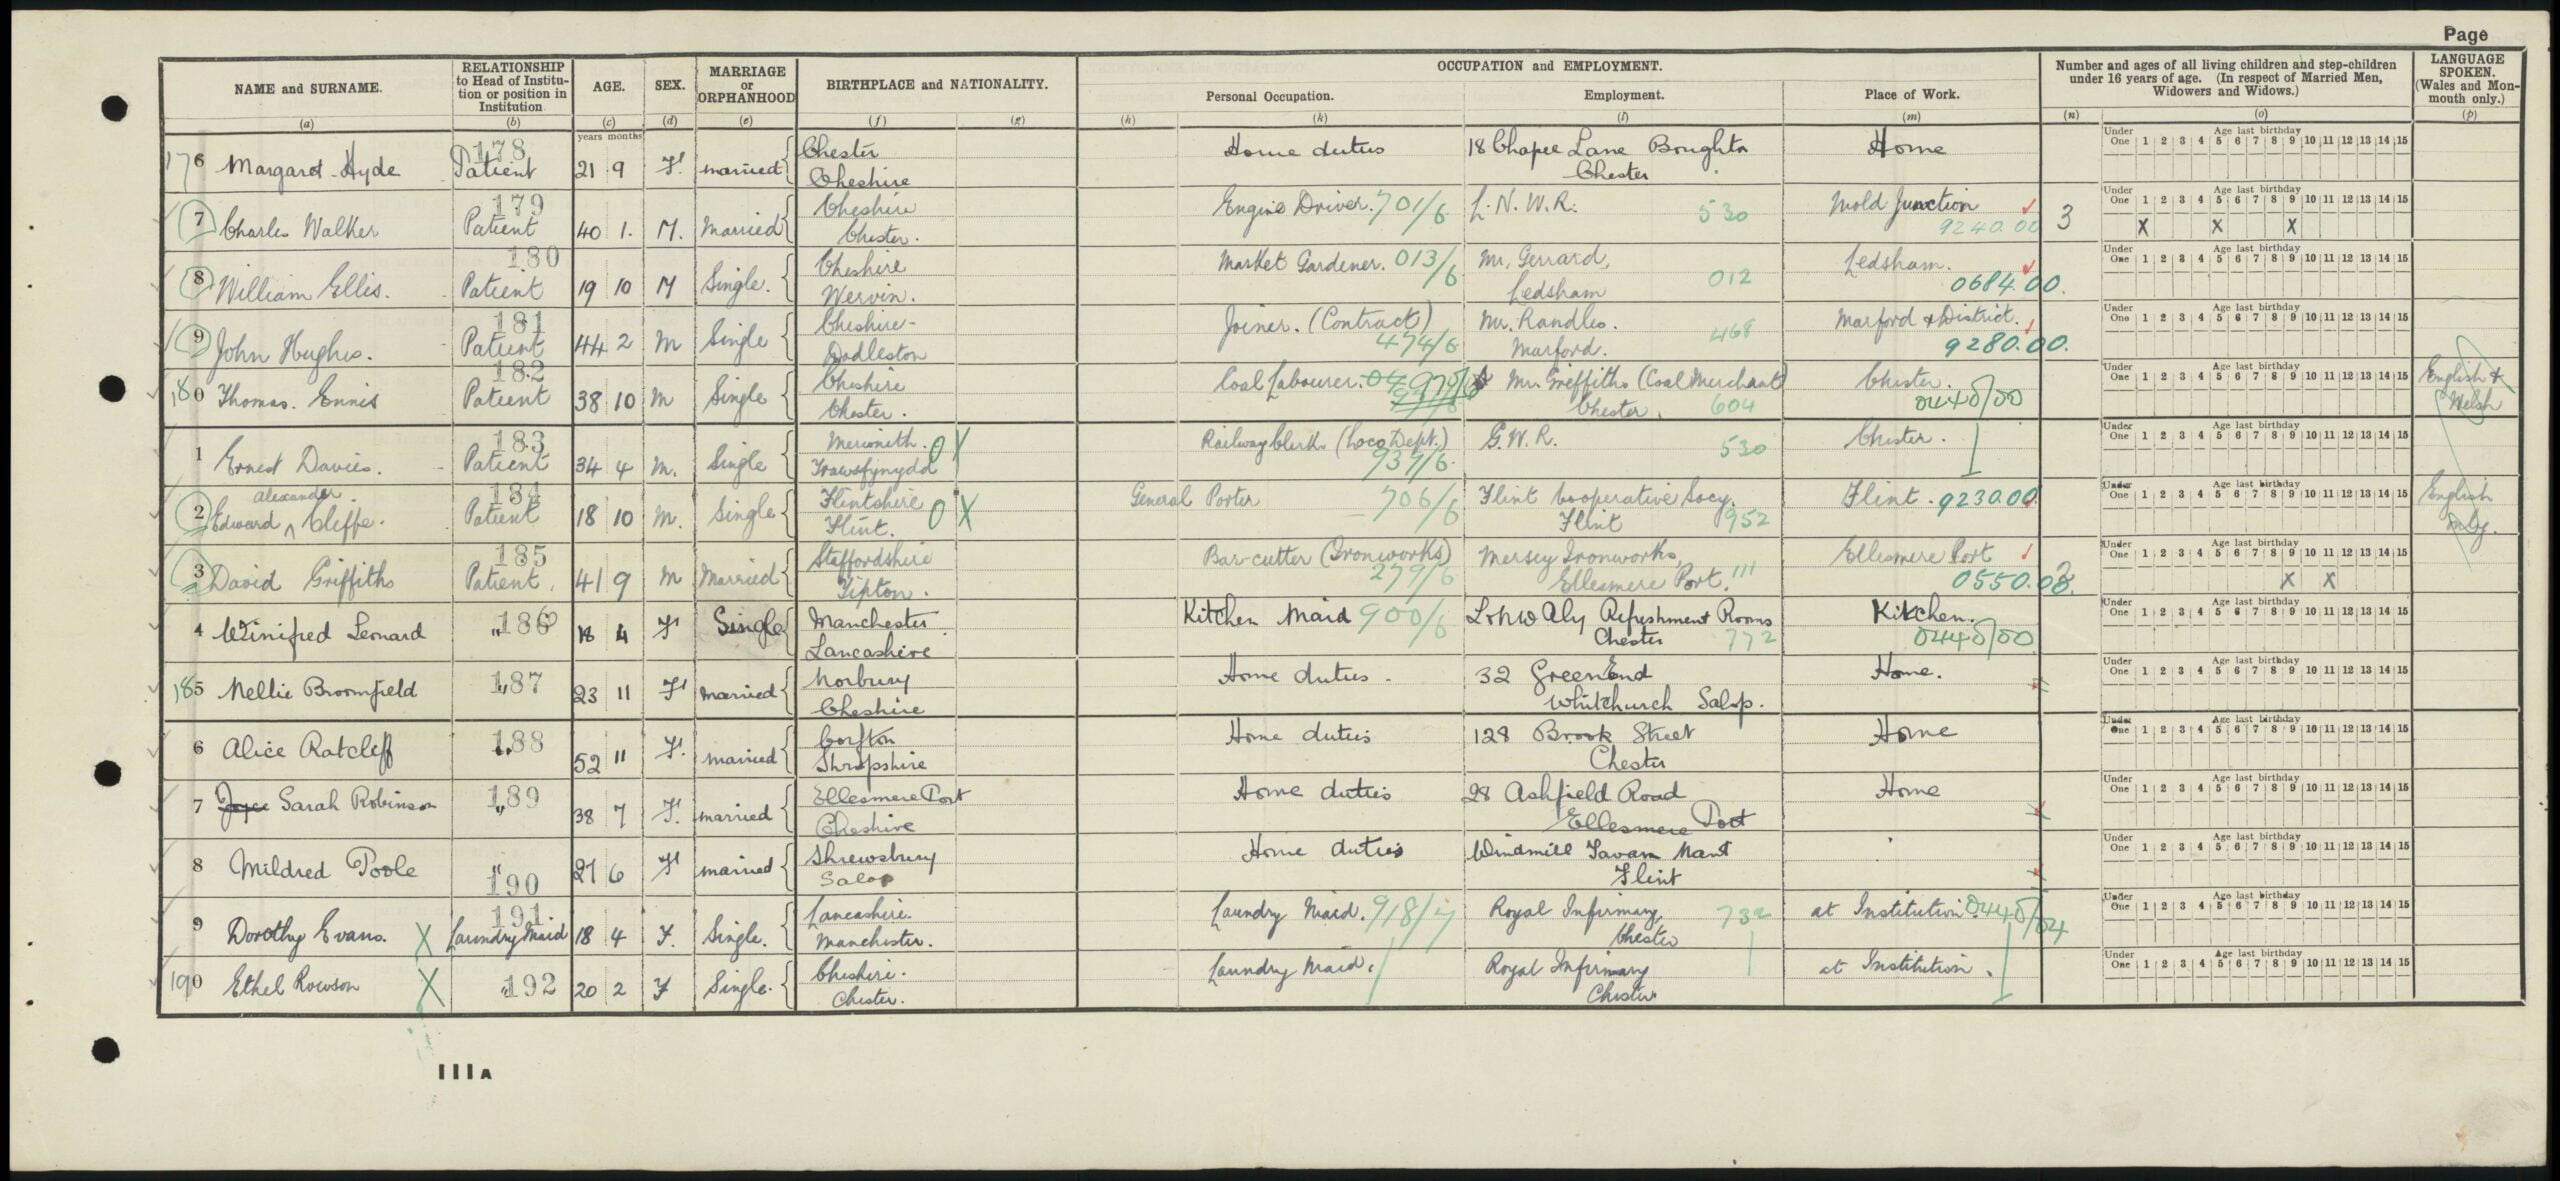 Page
NAME and SURNAME.
RELATIONSHIP
to Head of Institu-
tion or position in
Institution
AGE.
SEX.
MARRIAGE
or
ORPHANHOOD
BIRTHPLACE and NATIONALITY.
OCCUPATION and EMPLOYMENT.
Personal Occupation.
Employment.
Place of Work.
Number and ages of all living children and step-children
under 16 years of age. (In respect of Married Men,
Widowers and Widows.)
LANGUAGE
SPOKEN.
(Wales and Mon-
mouth only.)
(a) (b) (c) (d) (e) (f) (g) (h) (k) (l) (m) (n) (o) (p)
years months
Under One Age last birthday 1 2 3 4 5 6 7 8 9 10 11 12 13 14 15
176 Margaret Hyde 178 Patient 21 9 F. married Chester Home duties 18 Chapel Lane Boughton Home
Cheshire Chester
7 Charles Walker 179 Patient 40 1. M. Married Cheshire Engine Driver. 701/6 L. N. W. R. 530 Mold Junction 3 X X X
Chester. 9240.00
8 William Ellis. 180 Patient 19 10 M Single. Cheshire Market Gardener. 013/6 Mr. Gerrard, Ledsham.
Wervin. Ledsham 012 0684.00.
9 John Hughes. 181 Patient 44 2 M Single Cheshire- Joiner. (Contract) Mr. Randles. Marford & District.
Dodleston 474/6 Marford. 468 9280.00.
180 Thomas. Ennis 182 Patient 38 10 M Single Cheshire Coal Labourer. Mr. Griffiths (Coal Merchant) Chester. English &
Chester. Chester. 604 Welsh
1 Ernest Davies. 183 Patient 34 4 M. Single Merioneth. 0 X Railway Clerk (Loco Dept.) G.W.R. Chester.
Trawsfynydd 939/6. 530
2 Edward Alexander Cleffe. 184 Patient 18 10 M. Single Flintshire General Porter Flint Cooperative Socy. Flint. 9230.00 English
Flint. 0 X 706/6 Flint 952 only.
3 David Griffiths 185 Patient. 41 9 M Married Staffordshire Bar-cutter (Ironworks) Mersey Ironworks, Ellesmere Port X X
Tipton. 279/6 Ellesmere Port. 111 0550.00
4 Winifred Leonard " 186 18 4 F Single Manchester Kitchen Maid 900/6 Refreshment Rooms Kitchen.
Lancashire Chester 772
185 Nellie Broomfield " 187 23 11 F married Norbury Home duties. 32 Green End Home.
Cheshire Whitchurch Salop.
6 Alice Ratcliff " 188 52 11 F. married Corfton Home duties 128 Brook Street Home
Shropshire Chester
7 Joyce Sarah Robinson " 189 38 7 F. married Ellesmere Port Home duties 28 Ashfield Road Home
Cheshire Ellesmere Port
8 Mildred Poole " 190 27 6 F married Shrewsbury Home duties Windmill
Salop Flint
9 Dorothy Evans. X 191 Laundry Maid 18 4 F. Single. Lancashire. Laundry Maid. Royal Infirmary 732 at Institution
Manchester. Chester
190 Ethel Rowson X " 192 20 2 F Single. Cheshire. Laundry Maid. Royal Infirmary at Institution.
Chester. Chester
IIIA